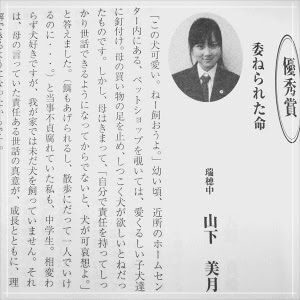 優秀賞
委ねられた命
瑞穂中 山下 美月
「この犬可愛い。ねー飼おうよ。」幼い頃、近所のホームセン
ター内にある、ペットショップを覗いては、愛くるしい子犬達
に釘付け。母の買い物の足を止め、しつこく犬が欲しいとねだっ
たものです。しかし、母はきまって、「自分で責任を持ってしっ
かり世話できるようになってからでないと、犬が可哀想よ。」
と答えました。(餌もあげられるし、散歩にだって一人でいけ
るのに・・・。)と当時不貞腐れていた私も、中学生。相変わ
らず犬好きですが、我が家では未だ犬を飼っていません。それ
は、母の言っていた責任ある世話の真意が、成長とともに、理